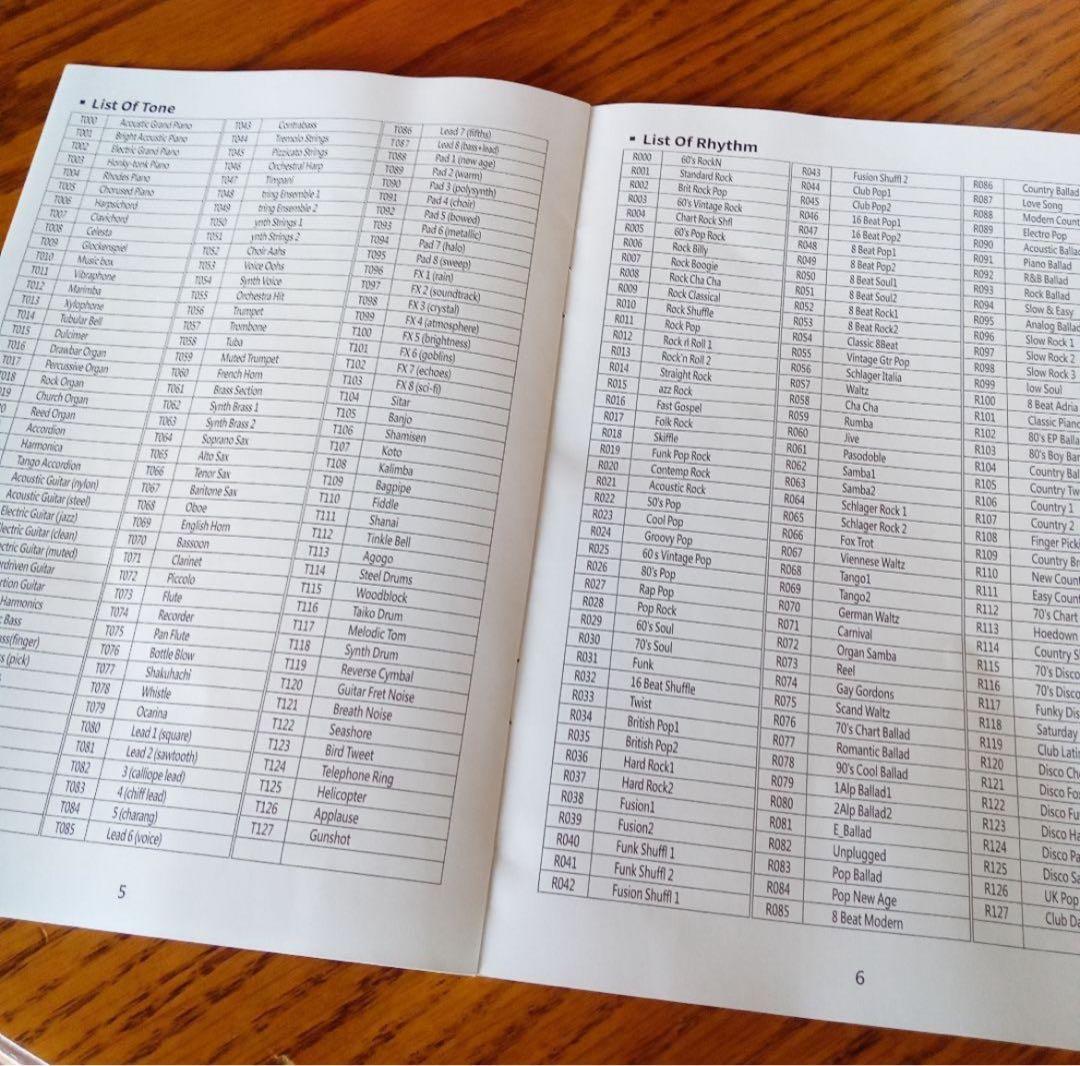 ▪ List Of Tone
T000 Acoustic Grand Piano
T001 Bright Acoustic Piano
T002 Electric Grand Piano
T003 Honky-tonk Piano
T004 Rhodes Piano
T005 Chorused Piano
T006 Harpsichord
T007 Clavichord
T008 Celesta
T009 Glockenspiel
T010 Music box
T011 Vibraphone
T012 Marimba
T013 Xylophone
T014 Tubular Bell
T015 Dulcimer
T016 Drawbar Organ
T017 Percussive Organ
018 Rock Organ
19 Church Organ
0 Reed Organ
Accordion
Harmonica
Tango Accordion
Acoustic Guitar (nylon)
Acoustic Guitar (steel)
Electric Guitar (jazz)
lectric Guitar (clean)
ctric Guitar (muted)
rdriven Guitar
rtion Guitar
Harmonics
Bass
ass(finger)
s (pick)
T043 Contrabass
T044 Tremolo Strings
T045 Pizzicato Strings
T046 Orchestral Harp
T047 Timpani
T048 tring Ensemble 1
T049 tring Ensemble 2
T050 ynth Strings 1
T051 ynth Strings 2
T052 Choir Aahs
T053 Voice Oohs
T054 Synth Voice
T055 Orchestra Hit
T056 Trumpet
T057 Trombone
T058 Tuba
T059 Muted Trumpet
T060 French Horn
T061 Brass Section
T062 Synth Brass 1
T063 Synth Brass 2
T064 Soprano Sax
T065 Alto Sax
T066 Tenor Sax
T067 Baritone Sax
T068 Oboe
T069 English Horn
T070 Bassoon
T071 Clarinet
T072 Piccolo
T073 Flute
T074 Recorder
T075 Pan Flute
T076 Bottle Blow
T077 Shakuhachi
T078 Whistle
T079 Ocarina
T080 Lead 1 (square)
T081 Lead 2 (sawtooth)
T082 3 (calliope lead)
T083 4 (chiff lead)
T084 5 (charang)
T085 Lead 6 (voice)
T086 Lead 7 (fifths)
T087 Lead 8 (bass+lead)
T088 Pad 1 (new age)
T089 Pad 2 (warm)
T090 Pad 3 (polysynth)
T091 Pad 4 (choir)
T092 Pad 5 (bowed)
T093 Pad 6 (metallic)
T094 Pad 7 (halo)
T095 Pad 8 (sweep)
T096 FX 1 (rain)
T097 FX 2 (soundtrack)
T098 FX 3 (crystal)
T099 FX 4 (atmosphere)
T100 FX 5 (brightness)
T101 FX 6 (goblins)
T102 FX 7 (echoes)
T103 FX 8 (sci-fi)
T104 Sitar
T105 Banjo
T106 Shamisen
T107 Koto
T108 Kalimba
T109 Bagpipe
T110 Fiddle
T111 Shanai
T112 Tinkle Bell
T113 Agogo
T114 Steel Drums
T115 Woodblock
T116 Taiko Drum
T117 Melodic Tom
T118 Synth Drum
T119 Reverse Cymbal
T120 Guitar Fret Noise
T121 Breath Noise
T122 Seashore
T123 Bird Tweet
T124 Telephone Ring
T125 Helicopter
T126 Applause
T127 Gunshot
5
▪ List Of Rhythm
R000 60's RockN
R001 Standard Rock
R002 Brit Rock Pop
R003 60's Vintage Rock
R004 Chart Rock Shfl
R005 60's Pop Rock
R006 Rock Billy
R007 Rock Boogie
R008 Rock Cha Cha
R009 Rock Classical
R010 Rock Shuffle
R011 Rock Pop
R012 Rock n Roll 1
R013 Rock'n Roll 2
R014 Straight Rock
R015 azz Rock
R016 Fast Gospel
R017 Folk Rock
R018 Skiffle
R019 Funk Pop Rock
R020 Contemp Rock
R021 Acoustic Rock
R022 50's Pop
R023 Cool Pop
R024 Groovy Pop
R025 60 s Vintage Pop
R026 80's Pop
R027 Rap Pop
R028 Pop Rock
R029 60's Soul
R030 70's Soul
R031 Funk
R032 16 Beat Shuffle
R033 Twist
R034 British Pop1
R035 British Pop2
R036 Hard Rock1
R037 Hard Rock2
R038 Fusion1
R039 Fusion2
R040 Funk Shuffl 1
R041 Funk Shuffl 2
R042 Fusion Shuffl 1
R043 Fusion Shuffl 2
R044 Club Pop1
R045 Club Pop2
R046 16 Beat Pop1
R047 16 Beat Pop2
R048 8 Beat Pop1
R049 8 Beat Pop2
R050 8 Beat Soul1
R051 8 Beat Soul2
R052 8 Beat Rock1
R053 8 Beat Rock2
R054 Classic 8Beat
R055 Vintage Gtr Pop
R056 Schlager Italia
R057 Waltz
R058 Cha Cha
R059 Rumba
R060 Jive
R061 Pasodoble
R062 Samba1
R063 Samba2
R064 Schlager Rock 1
R065 Schlager Rock 2
R066 Fox Trot
R067 Viennese Waltz
R068 Tango1
R069 Tango2
R070 German Waltz
R071 Carnival
R072 Organ Samba
R073 Reel
R074 Gay Gordons
R075 Scand Waltz
R076 70's Chart Ballad
R077 Romantic Ballad
R078 90's Cool Ballad
R079 1Alp Ballad1
R080 2Alp Ballad2
R081 E_Ballad
R082 Unplugged
R083 Pop Ballad
R084 Pop New Age
R085 8 Beat Modern
R086 Country Ballad
R087 Love Song
R088 Modern Count
R089 Electro Pop
R090 Acoustic Ballad
R091 Piano Ballad
R092 R&B Ballad
R093 Rock Ballad
R094 Slow & Easy
R095 Analog Ballad
R096 Slow Rock 1
R097 Slow Rock 2
R098 Slow Rock 3
R099 low Soul
R100 8 Beat Adria
R101 Classic Piano
R102 80's EP Balla
R103 80's Boy Ban
R104 Country Bal
R105 Country Tw
R106 Country 1
R107 Country 2
R108 Finger Picki
R109 Country Br
R110 New Count
R111 Easy Count
R112 70's Chart
R113 Hoedown
R114 Country S
R115 70's Disco
R116 70's Disco
R117 Funky Dis
R118 Saturday
R119 Club Latin
R120 Disco Ch
R121 Disco Fo
R122 Disco Fu
R123 Disco Ha
R124 Disco Pa
R125 Disco Sa
R126 UK Pop
R127 Club Da
6